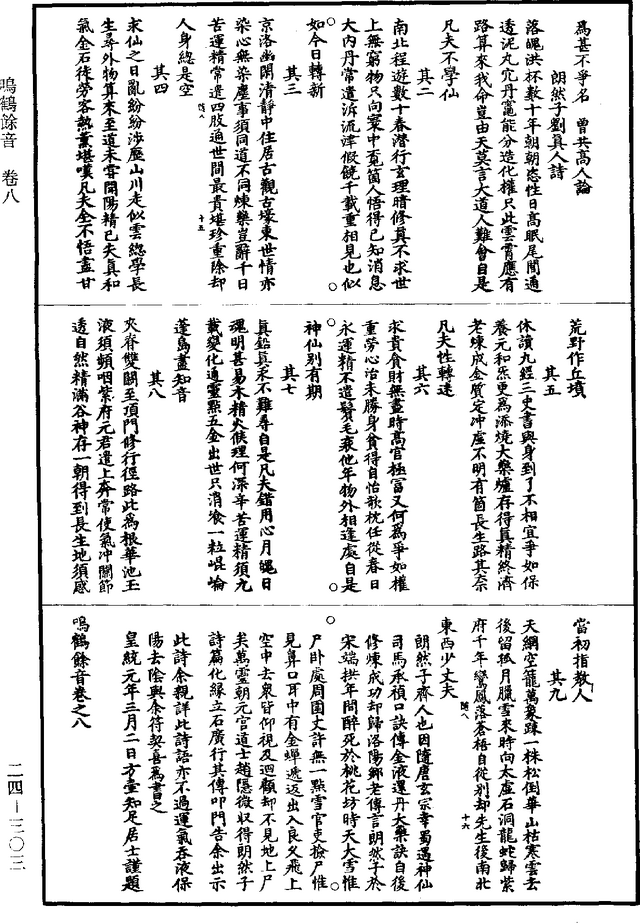 爲甚不爭名　曾共高人論
朗然子劉眞人詩
落魄洪杯數十年朝朝恣性日高眠尾閭通
透泥丸穴丹竈能分造化權只此雲霄應有
路算來我命豈由天莫言大道人難會自是
凡夫不學仙
其二
南北程遊數十春潛行玄理暗修眞不求世
上無窮物只向寰中覓箇人悟得已知消息
大內丹常遣泝流津假饒千載重相見也似
如今日轉新
其三
京洛幽閑清靜中住居古觀古壕東世情亦
染心無染塵事須同道不同煉藥豈辭千日
苦運精常遣四肢通世間最貴堪珍重除却
人身總是空
其四
求仙之日亂紛紛涉歷山川走似雲總學長
生尋外物算來至道未曾聞陽精已失眞和
氣金石徒勞客熱薰堪嘆凡夫全不悟盡甘
荒野作丘墳
其五
休讀九經三史書與身到了不相宜爭如保
養元和炁更爲添燒大藥爐存得眞精終濟
老煉成金質定沖虛不明有箇長生路其奈
凡夫性轉迷
其六
求貴貪財無盡時高官極富又何爲爭如權
重勞心治未勝身貧得自怡欹枕任從春日
永運精不遣鬢毛衰他年物外相逢處自是
神仙別有期
其七
眞鉛眞汞不難尋自是凡夫錯用心月魄日
魂明甚易木精火候理何深辛苦運精須九
載變化通靈點五金出世只消飡一粒崐崘
蓬島盡知音
其八
夾脊雙關至頂門修行徑路此爲根華池玉
液須頻咽紫府元君遣上奔常使氣冲關節
透自然精滿谷神存一朝得到長生地須感
當初指教人
其九
天網空籠萬象踈一株松倒華山枯寒雲去
後留孤月臘雪來時向太虛石洞龍蛇歸紫
府千年鸞鳳落蒼梧自從別却先生後南北
東西少丈夫
朗然子齊人也因隨唐玄宗幸蜀遇神仙
司馬承禎口訣傳金液還丹大藥訣自後
修煉成功却歸洛陽鄉老傳言朗然子於
宋端拱年間醉死於桃花坊時天大雪惟
尸卧處周圍丈許無一點雪官吏撿尸惟
見鼻口耳中有金蟬遞返出入良久飛上
空中去衆皆仰視及迴顧却不見地上尸
矣萬靈朝元宮道士趙隱微收得朗然子
詩篇化緣立石廣行其傳叩門告余出示
此詩余親詳此詩語亦不過運氣吞液保
陽去陰與余符契喜爲書之
皇統元年三月二日方壺知足居士謹題
鳴鶴餘音卷之八
鳴鶴餘音　卷八
二四－三〇三
隨八　十五
隨八　十六